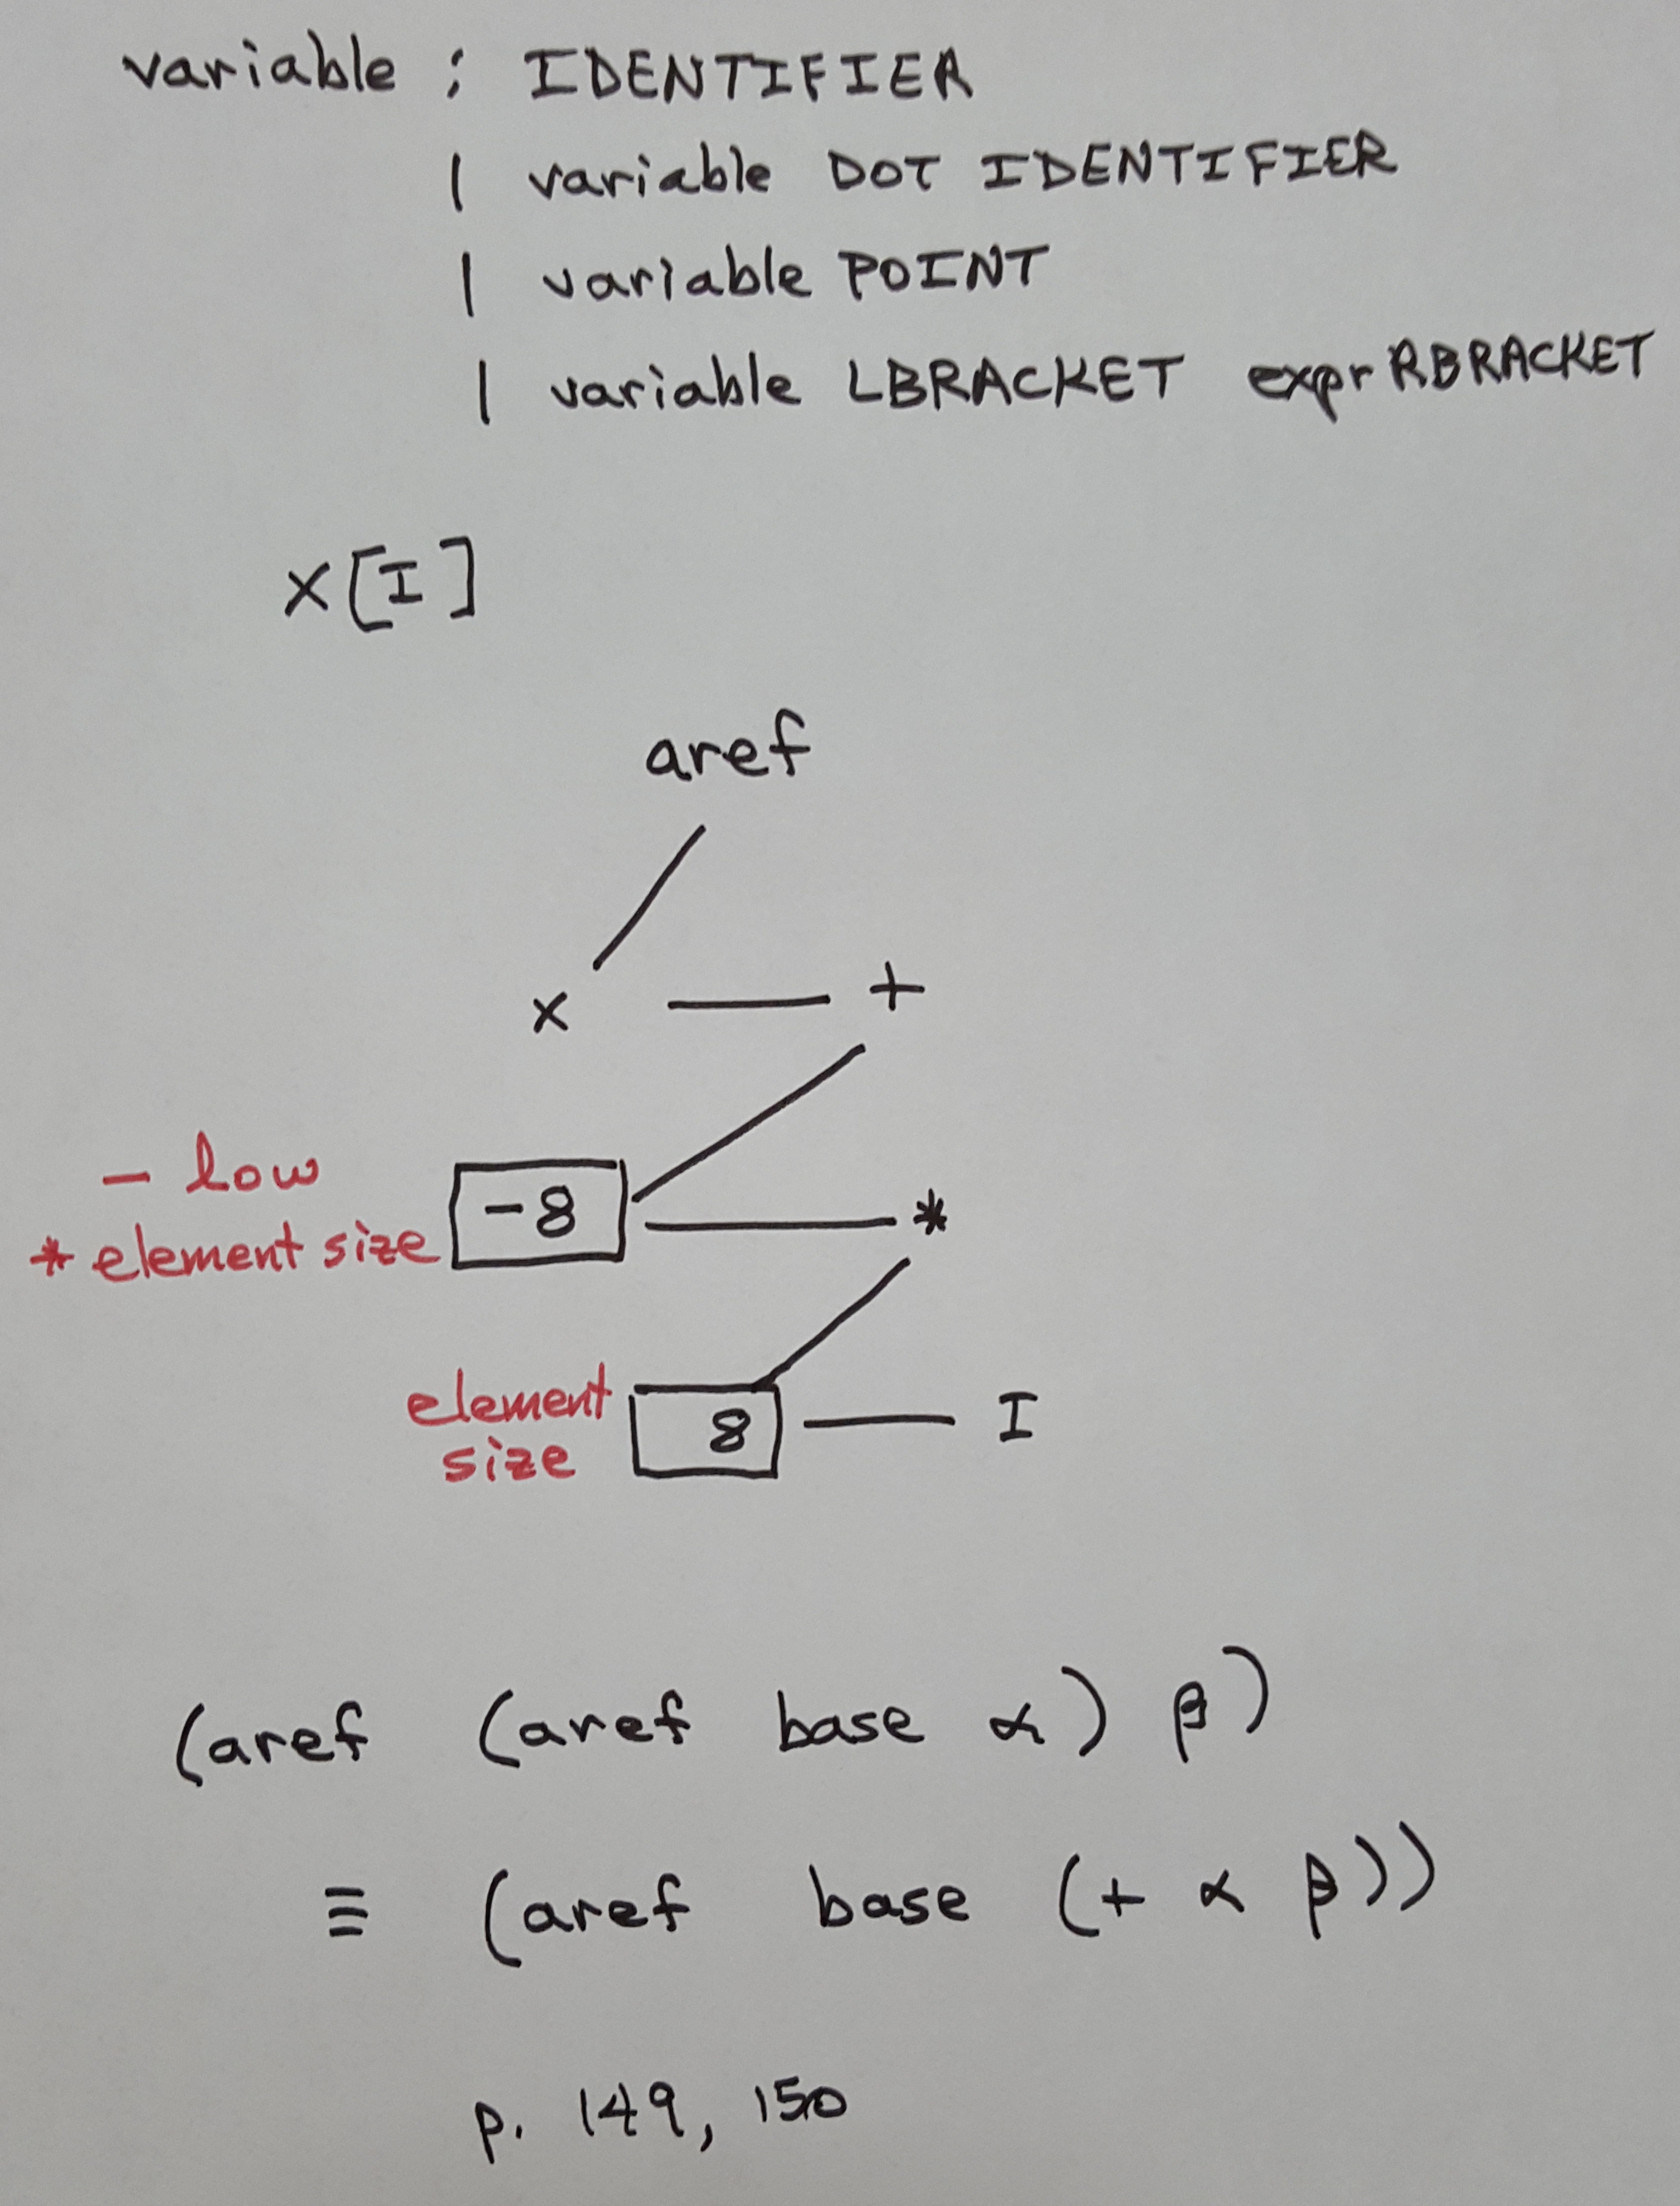 variable : IDENTIFIER
| variable DOT IDENTIFIER
| variable POINT
| variable LBRACKET expr RBRACKET
X[I]
aref
x +
- low
* element size -8 *
element size 8 I
(aref (aref base α) β)
≡ (aref base (+ α β))
p. 149, 150